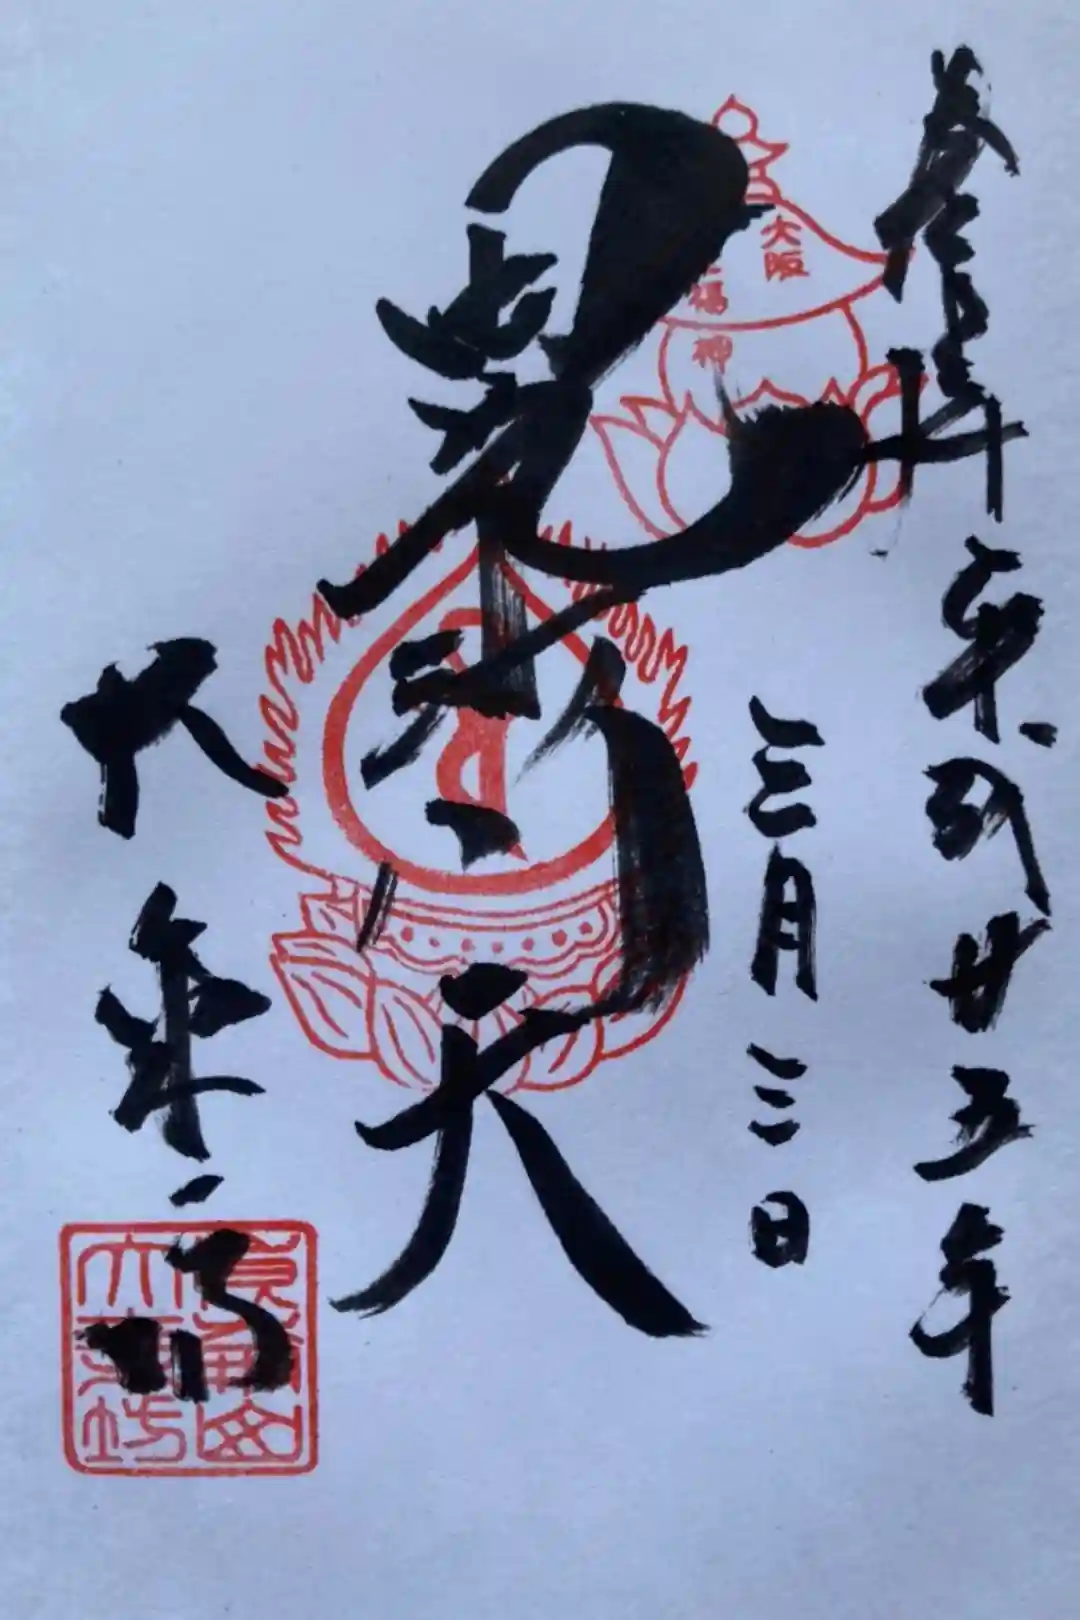 奉拝
平成廿五年
三月三日
大阪
七福神
毘沙門天
大乗坊